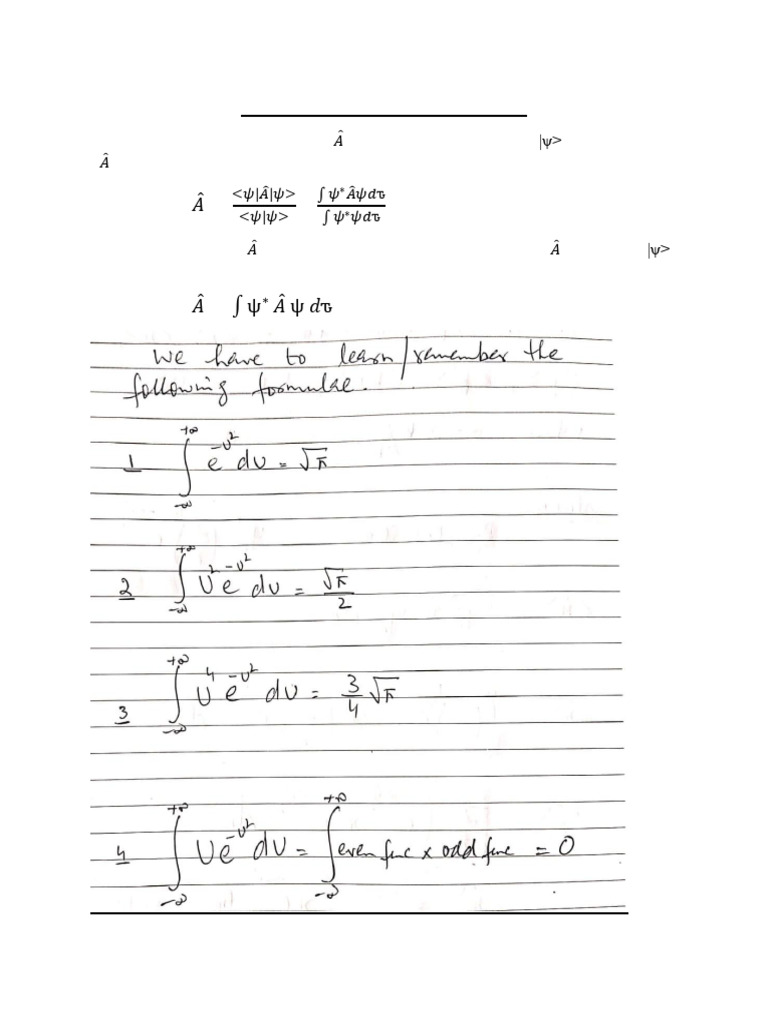 Â |ψ>
Â
Â <ψ|Â|ψ> / <ψ|ψ> ∫ψ*Âψdτ / ∫ψ*ψdτ
Â Â |ψ>
Â ∫ψ* Â ψ dτ
We have to learn/remember the
following formulae.
1 ∫_{-∞}^{+∞} e^{-υ²} dυ = √π
2 ∫_{-∞}^{+∞} υ² e^{-υ²} dυ = √π/2
3 ∫_{-∞}^{+∞} υ⁴ e^{-υ²} dυ = 3/4 √π
4 ∫_{-∞}^{+∞} υe^{-υ²} dυ = ∫_{-∞}^{+∞} even func x odd func = 0